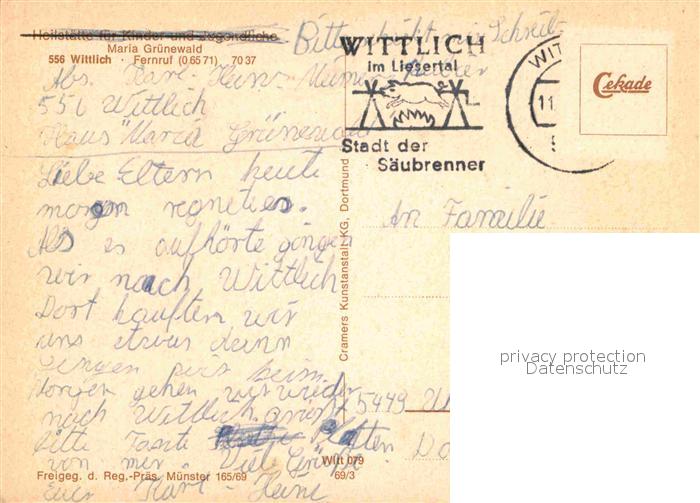 Heilstätte für Kinder und Jugendliche
Maria Grünewald
556 Wittlich · Fernruf (0 65 71) 70 37
Bitte
Schreib
Abs. Karl-Heinz
550 Wittlich
Haus Maria Grünewald
WITTLICH
im Liesertal
Stadt der
Säubrenner
WIT
11.
5
Cekade
Liebe Eltern heute
morgen regnete es.
Als es aufhörte gingen
wir nach Wittlich
Dort kauften wir
uns etwas dann
gingen wir heim.
Morgen gehen wir wieder
nach Wittlich
Bitte
von mir Viele Grüße
Euer Karl-Heinz
An Familie
5449
Cramers Kunstanstalt KG, Dortmund
Freigeg. d. Reg.-Präs. Münster 165/69
Witt 079
69/3
privacy protection
Datenschutz